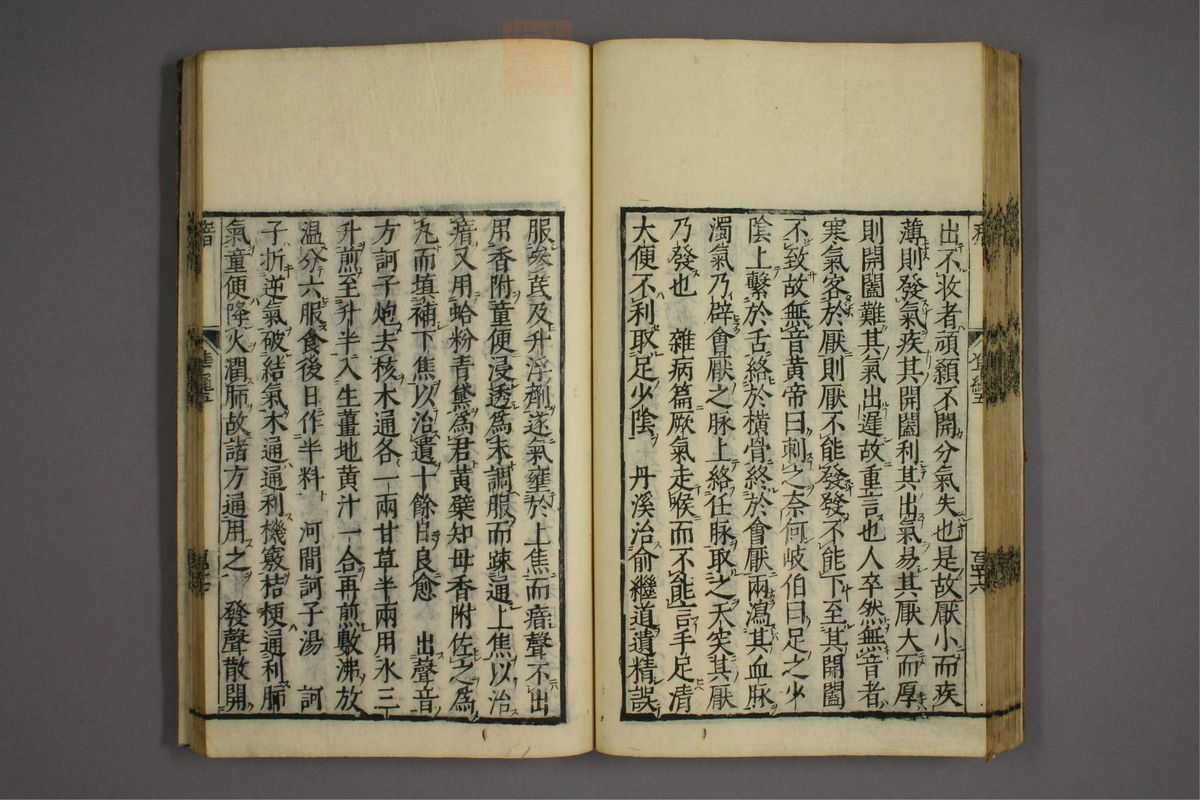 出不收者頏顙不開分氣失也是故厭小而疾
薄則發氣疾其開闔利其出氣易其厭大而厚
則開闔難其氣出遲故重言也人卒然無音者
寒氣客於厭則厭不能發發不能下至其開闔
不致故無音黄帝曰刺之奈何岐伯曰足之少
陰上繫於舌絡於橫骨終於會厭兩瀉其血脉
濁氣乃辟會厭之脉上絡任脉取之天突其厭
乃發也　雜病篇厥氣走喉而不能言手足清
大便不利取足少陰　丹溪治俞繼道遺精誤
服參芪及升浮劑遂氣壅於上焦而瘖聲不出
用香附童便浸透為末調服而疎通上焦以治
瘖又用蛤粉青黛為君黄蘗知母香附佐之為
丸而填補下焦以治遺十餘日良愈　出聲音
方訶子炮去核木通各一兩甘草半兩用水三
升煎至升半入生薑地黄汁一合再煎數沸放
温分六服食後日作半料　河間訶子湯　訶
子折逆氣破結氣木通通利機竅桔梗通利肺
氣童便降火潤肺故諸方通用之　發聲散開